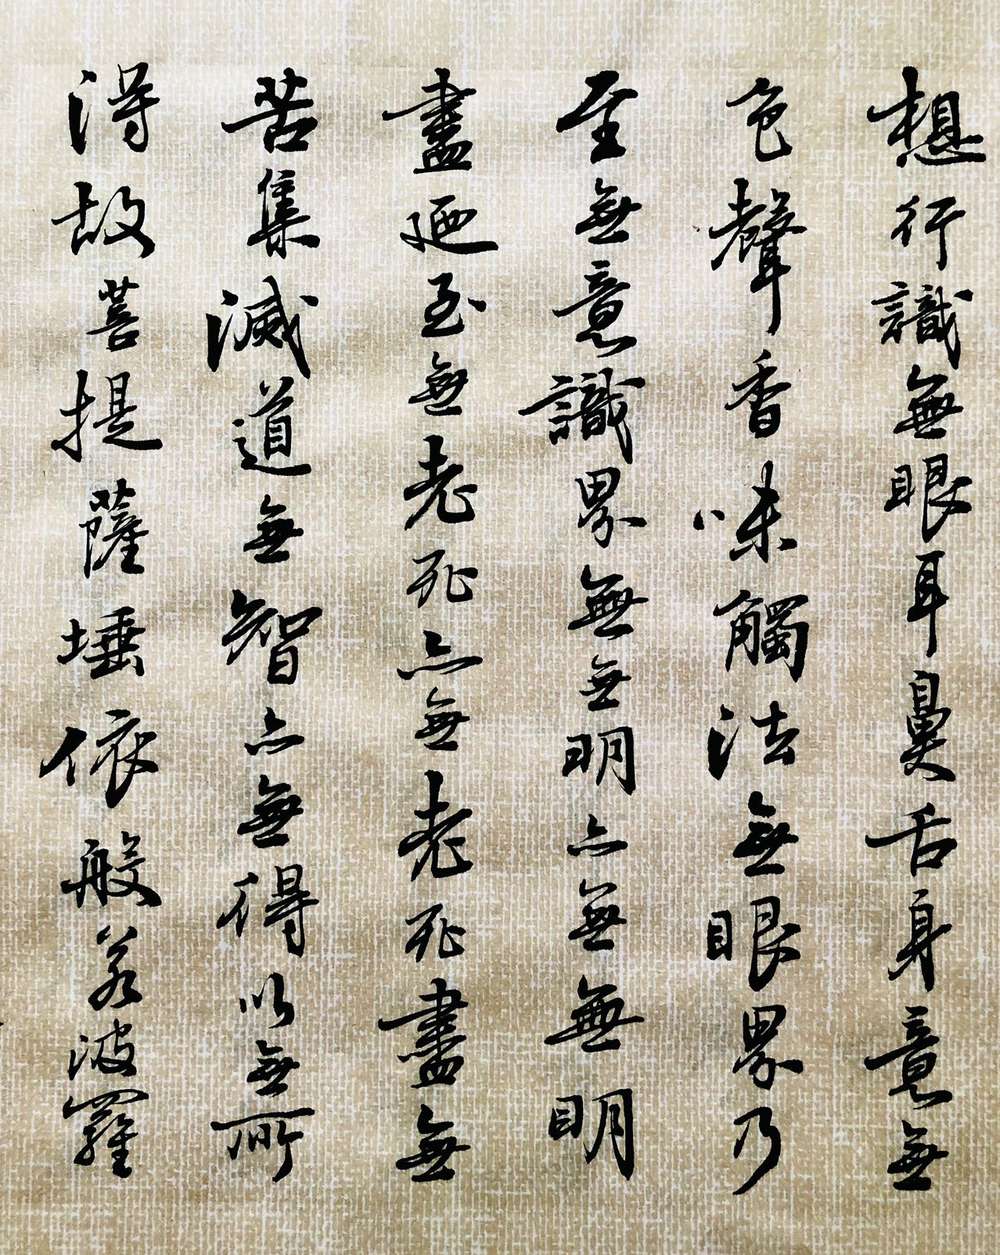 想行識無眼耳鼻舌身意無
色聲香味觸法無眼界乃
至無意識界無無明亦無無明
盡廼至無老死亦無老死盡無
苦集滅道無智亦無得以無所
得故菩提薩埵依般若波羅